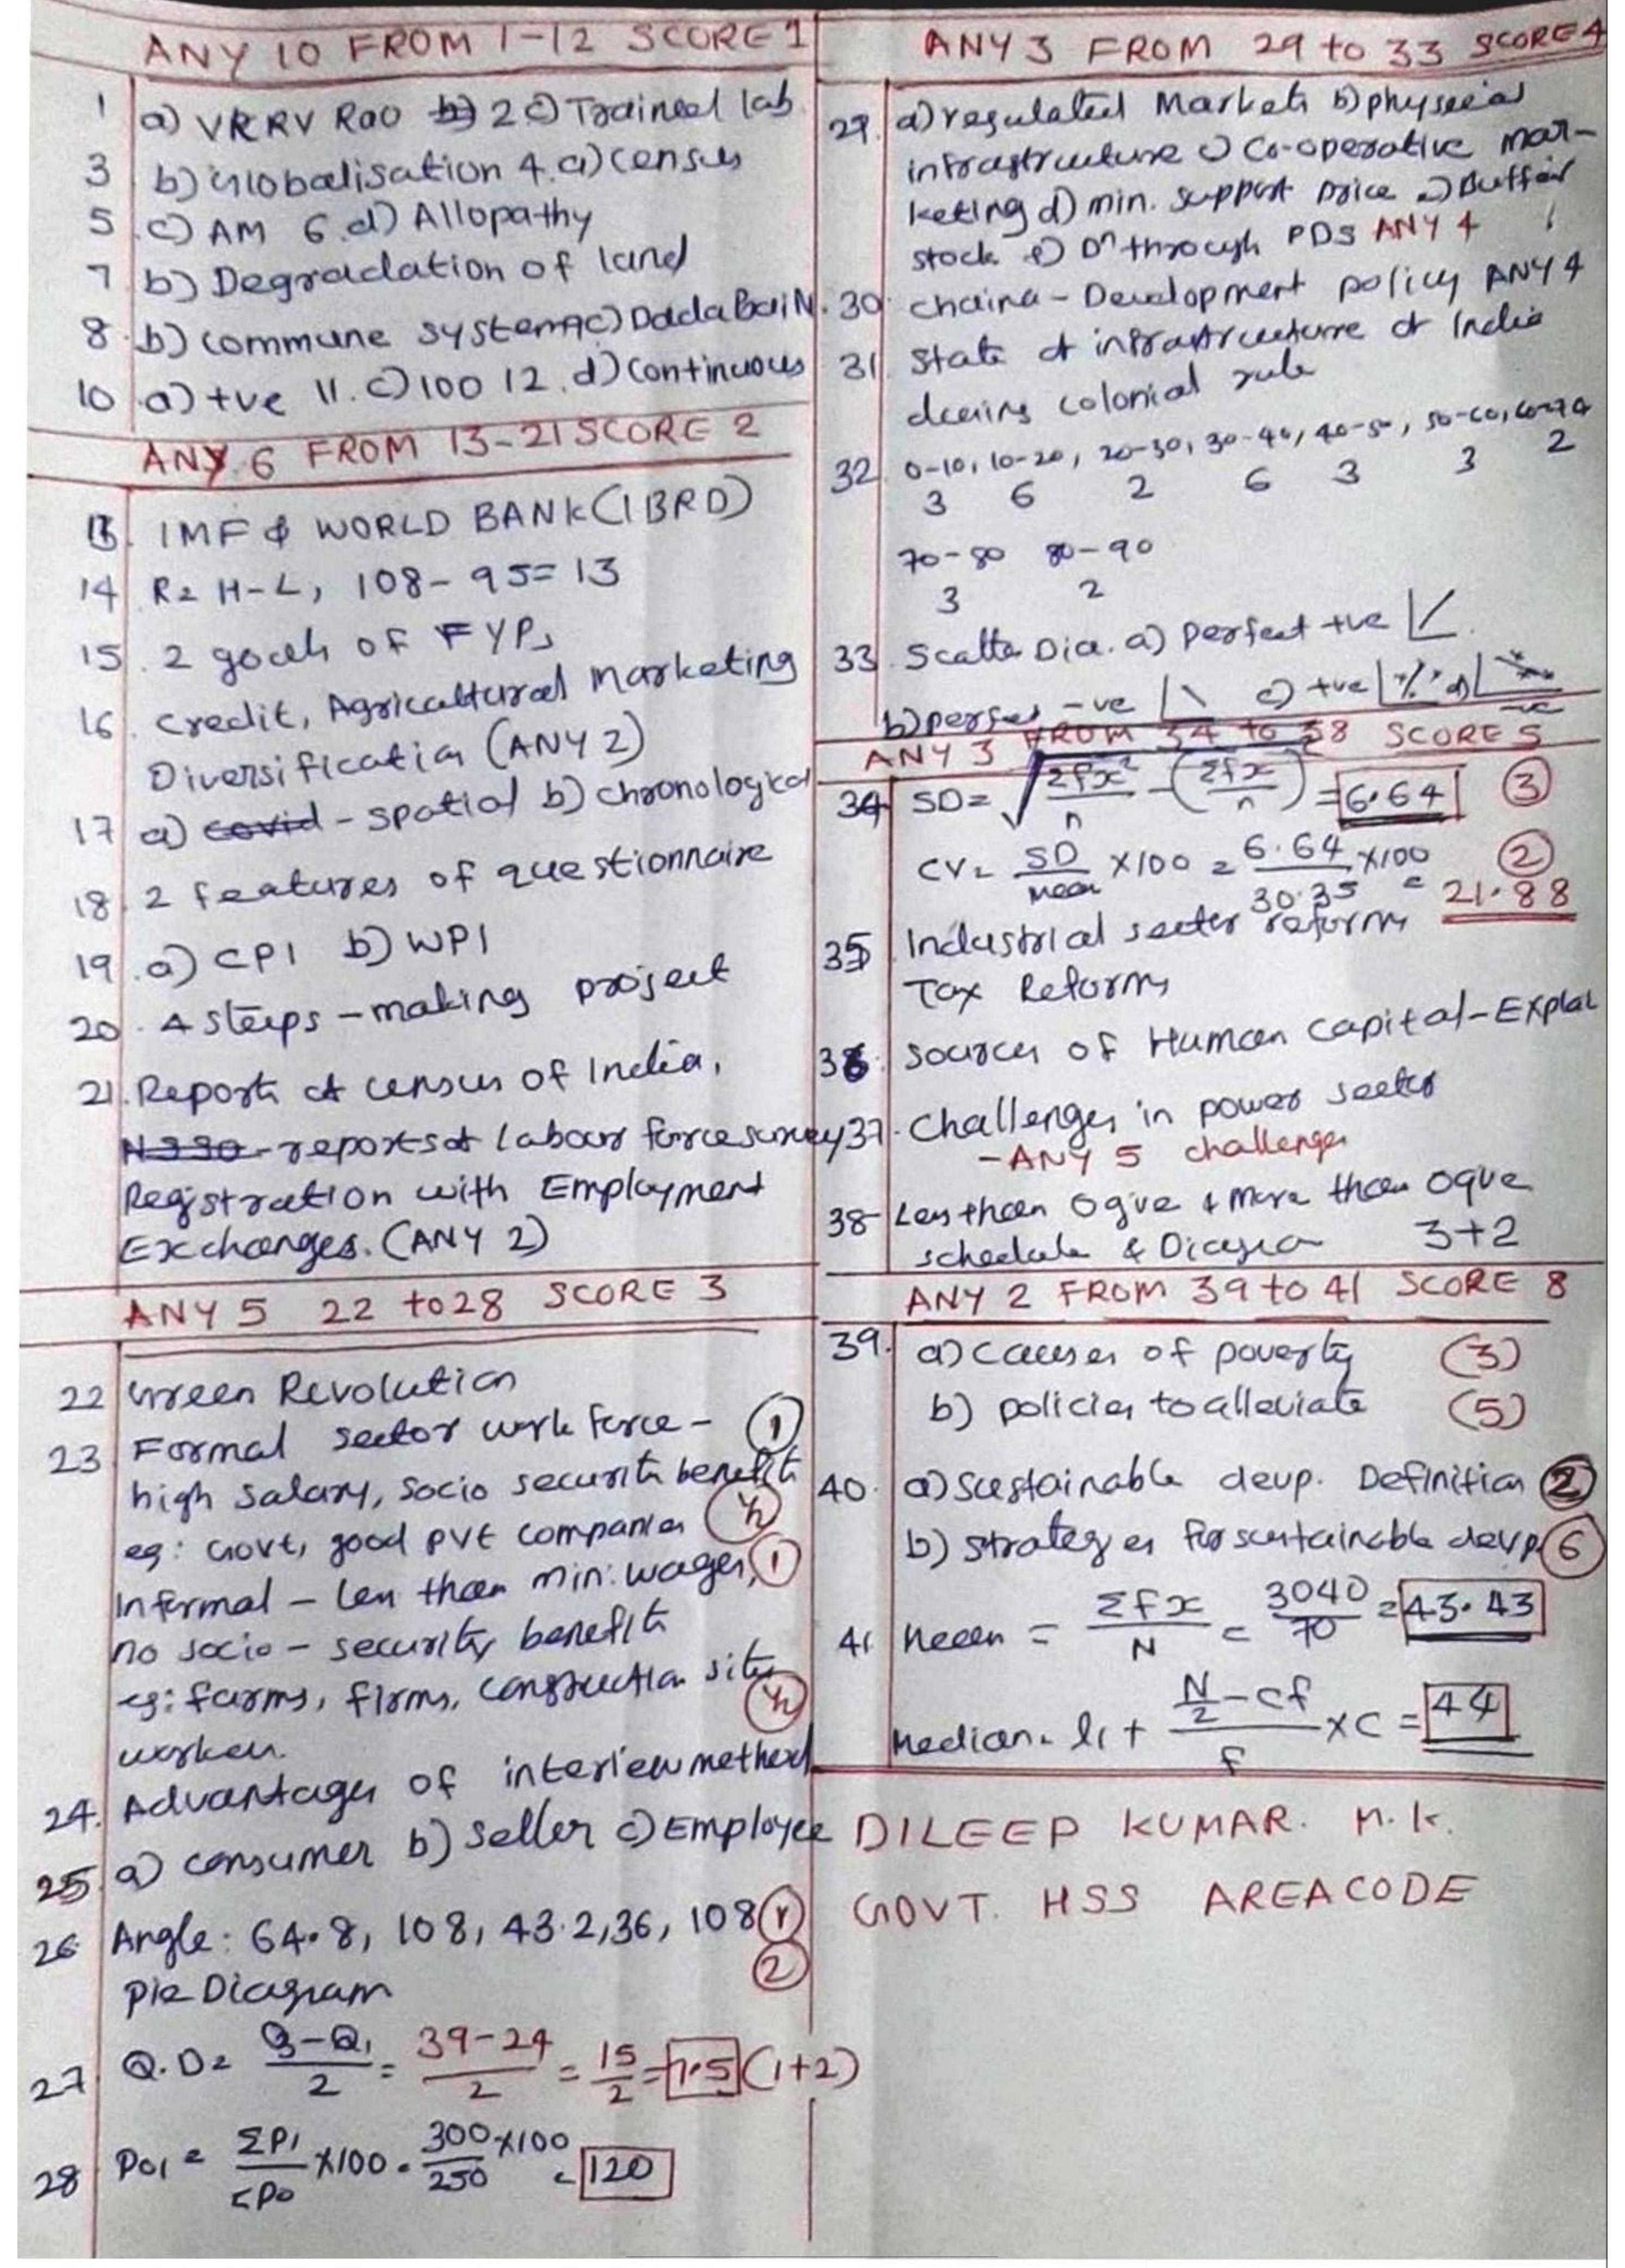 ANY 10 FROM 1-12 SCORE 1
1 a) VKRV Rao 2 c) Trained lab
3 b) Globalisation 4. a) census
5 c) AM 6. d) Allopathy
7 b) Degradation of land
8. b) commune system 9 c) Dadabai N.
10 a) +ve 11. c) 100 12. d) Continuous
ANY 6 FROM 13-21 SCORE 2
13. IMF & WORLD BANK (IBRD)
14 R= H-L, 108-95=13
15. 2 goals of FYPs
16. Credit, Agricultural Marketing
Diversification (ANY 2)
17 a) covid - spatial b) chronological
18. 2 features of questionnaire
19. a) CPI b) WPI
20. 4 steps - making project
21. Reports of census of India,
NSSO - reports of labour force survey
Registration with Employment
Exchanges. (ANY 2)
ANY 5 22 to 28 SCORE 3
22 Green Revolution
23 Formal sector work force - 1
high salary, socio security benefits
eg: Govt, good pvt companies ½
Informal - less than min: wages, 1
no socio - security benefits
eg: farms, firms, construction site ½
workers.
24. Advantages of interview method
25. a) consumer b) seller c) Employee
26 Angle: 64.8, 108, 43.2, 36, 108 1
Pie Diagram 2
27 Q.D= Q3-Q1/2 = 39-24/2 = 15/2 = 7.5 (1+2)
28 P01 = ΣP1/ΣP0 x100 = 300/250 x100 = 120
ANY 3 FROM 29 to 33 SCORE 4
29. a) regulated Markets b) physical
infrastructure c) Co-operative mar-
keting d) min. support price e) Buffer
stock f) Dn through PDS ANY 4
30. chaina - Development policy ANY 4
31. State of infrastructure of India
during colonial rule
32. 0-10, 10-20, 20-30, 30-40, 40-50, 50-60, 60-70
3 6 2 6 3 3 2
70-80 80-90
3 2
33. Scatter Dia. a) perfect +ve
b) perfect -ve c) +ve d) -ve
ANY 3 FROM 34 to 38 SCORE 5
34 SD= √Σfx²/n - (Σfx/n) = 6.64 3
CV= SD/mean x100 = 6.64/30.35 x100 = 21.88 2
35 Industrial sector reforms
Tax Reforms
36. sources of Human capital-Explai
37. Challenges in power sector
- ANY 5 challenges
38 Less than Ogive & More than Ogive
schedule & Diagra 3+2
ANY 2 FROM 39 to 41 SCORE 8
39. a) causes of poverty (3)
b) policies to alleviate (5)
40. a) Sustainable devp. Definition 2
b) Strategies for sustainable devp. 6
41 Mean = Σfx/N = 3040/70 = 43.43
Median = l1 + N/2-cf/f xC = 44
DILEEP KUMAR. M.K.
GOVT. HSS AREACODE